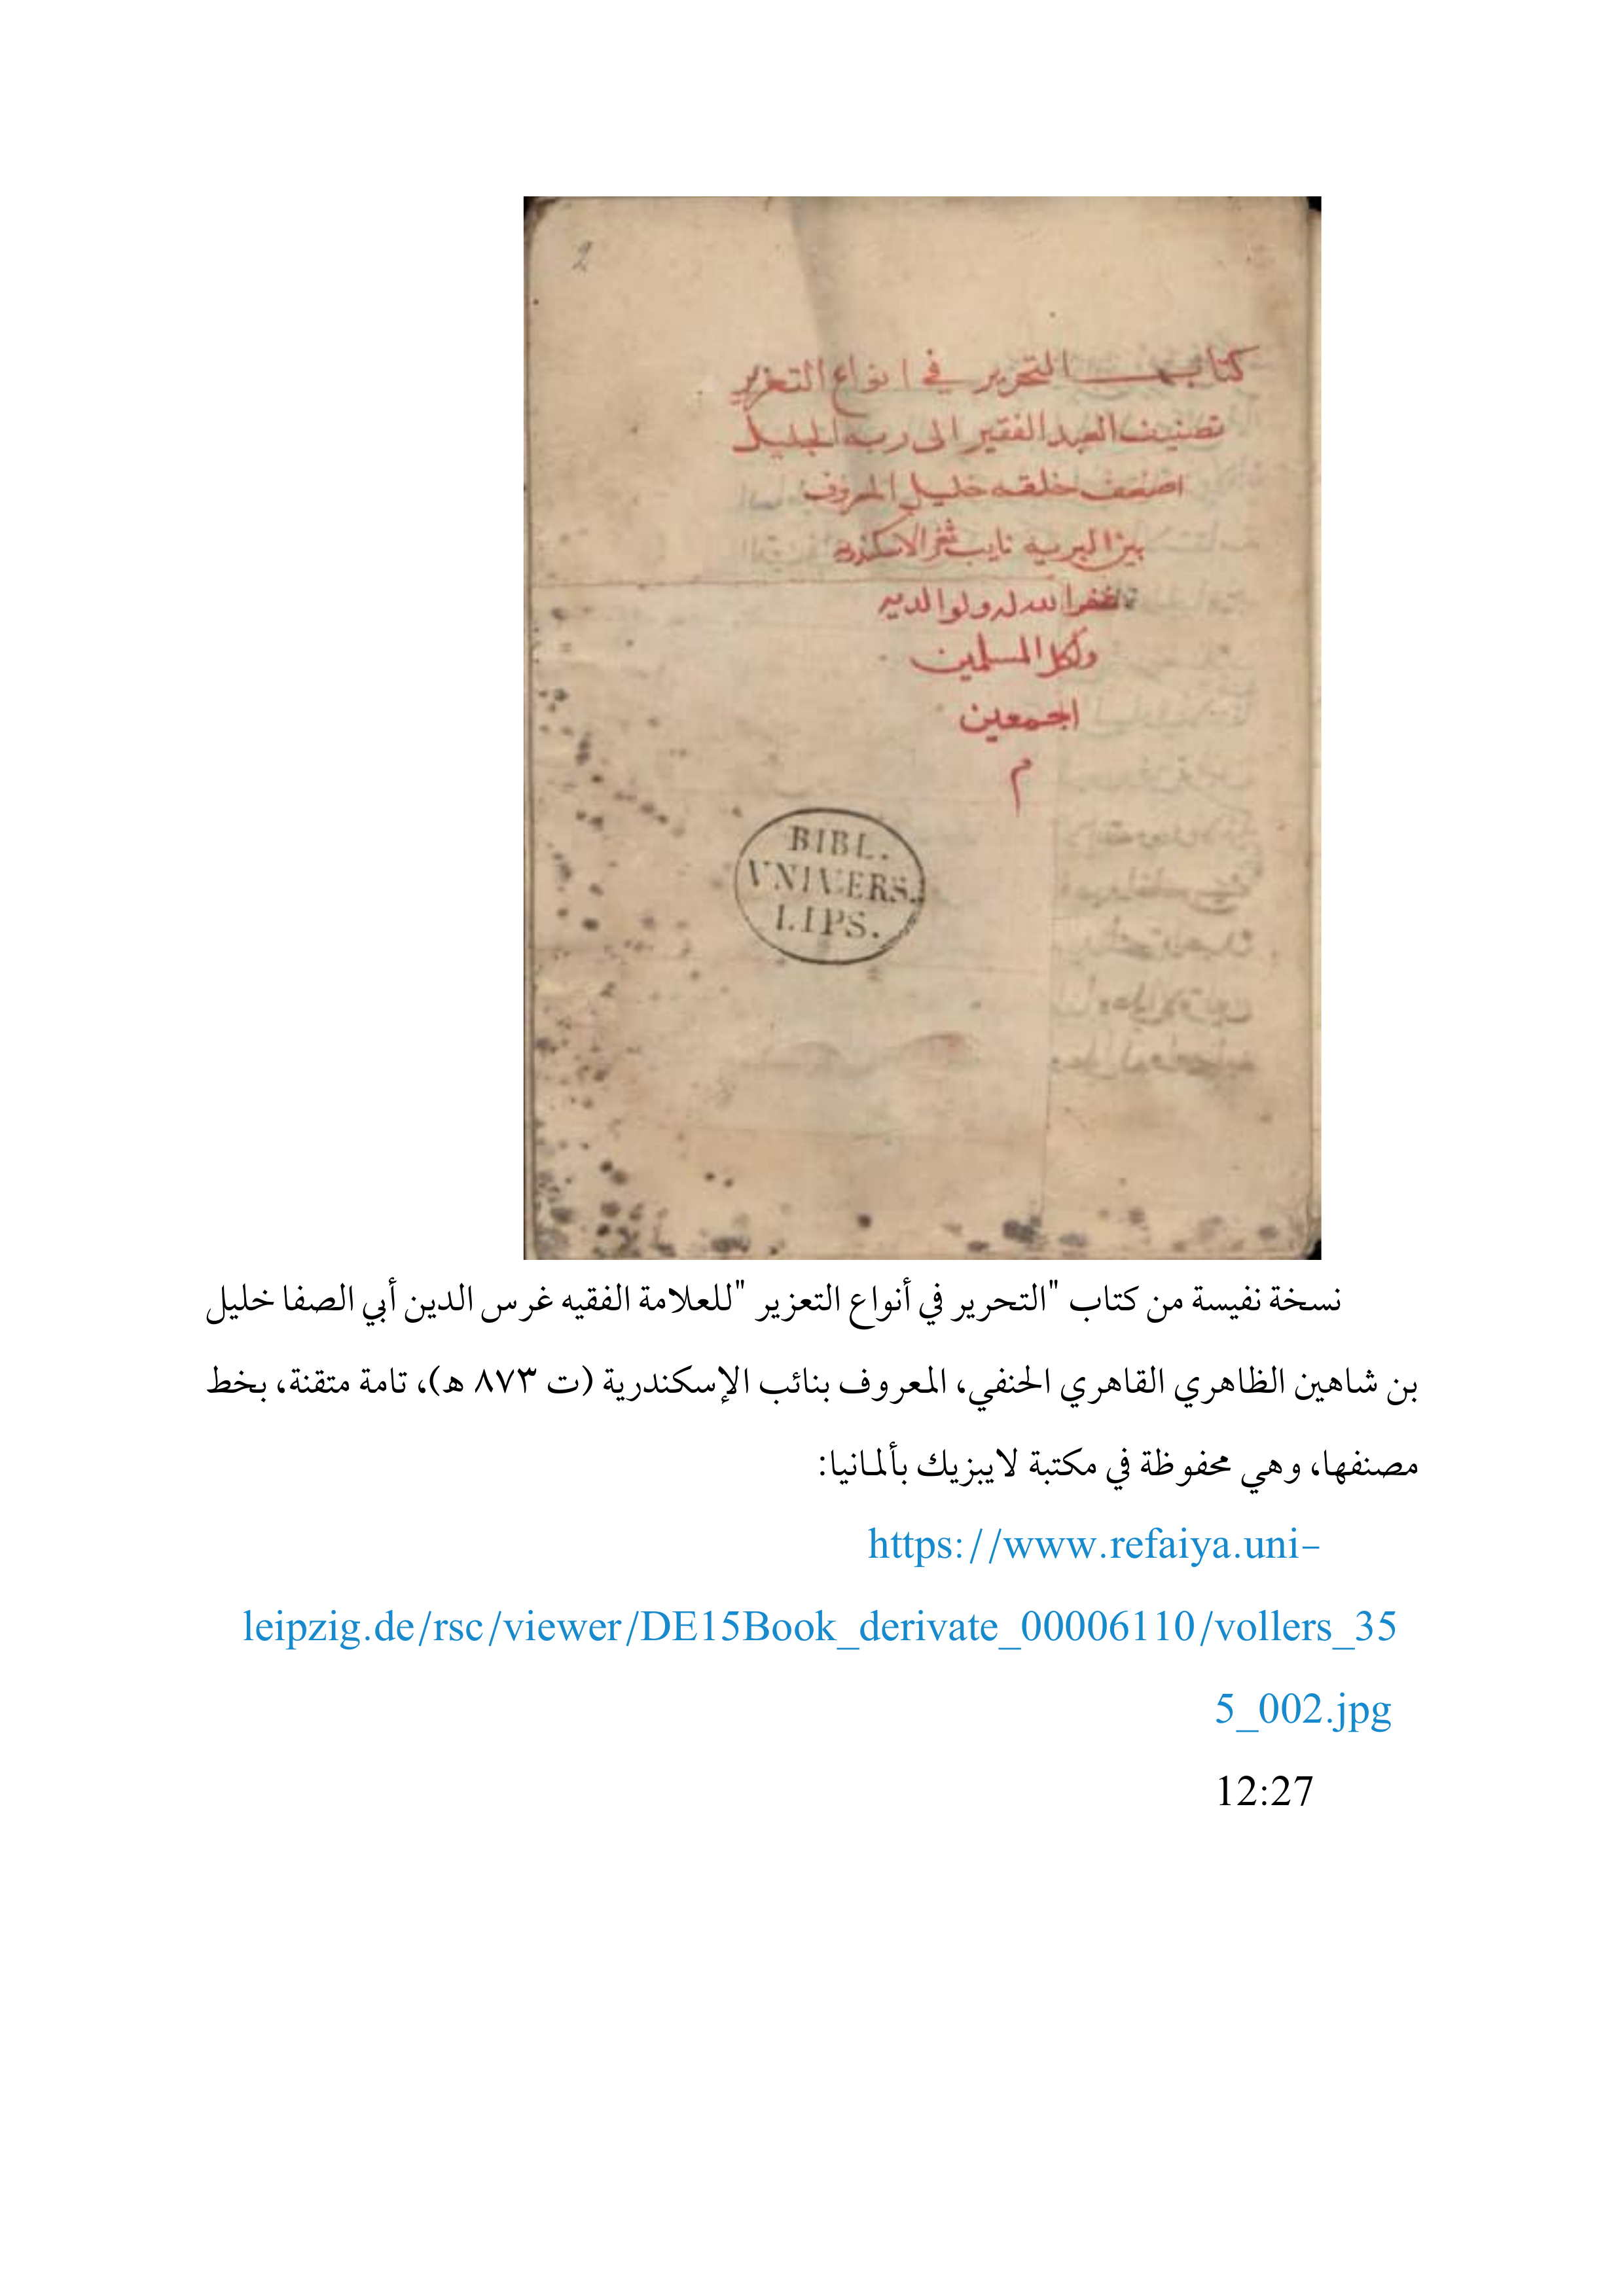 2
كتاب التحرير في انواع التعزير
تصنيف العبد الفقير الى ربه الجليل
اضعف خلقه خليل المعروف
بين البريه نايب ثغر الاسكندريه
غفر الله له ولوالديه
ولكل المسلمين
اجمعين
م
BIBL.
VNIVERS.
LIPS.
نسخة نفيسة من كتاب "التحرير في أنواع التعزير "للعلامة الفقيه غرس الدين أبي الصفا خليل
بن شاهين الظاهري القاهري الحنفي، المعروف بنائب الإسكندرية (ت ٨٧٣ ه)، تامة متقنة، بخط
مصنفها، وهي محفوظة في مكتبة لايبزيك بألمانيا:
https://www.refaiya.uni-
leipzig.de/rsc/viewer/DE15Book_derivate_00006110/vollers_35
5_002.jpg
12:27